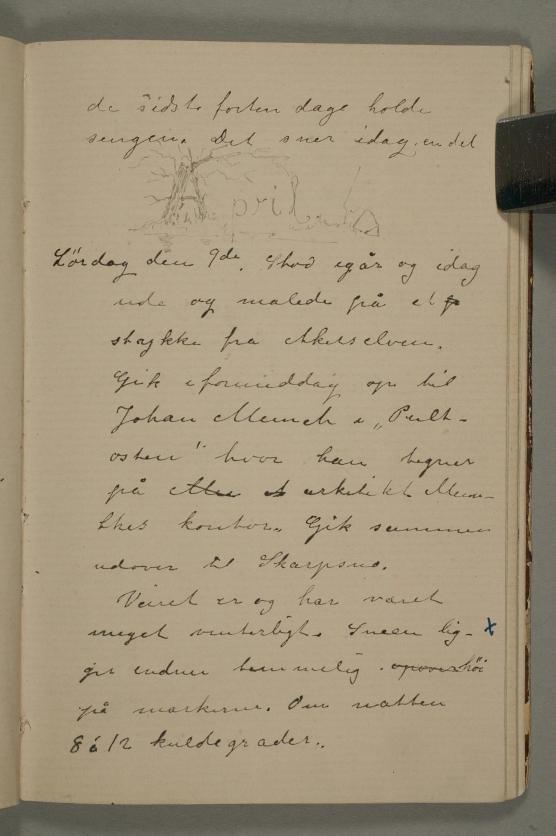 de sidste forten dage holde
sengen. Det sner idag en del
April
Lördag den 9de. Stod igår og idag
ude og malede på et p
stagkke fra Akerselven.
Gik iformiddag op til
Johan Munch i „Pult-
osten" hvor han tegner
på arkitekt Mun-
thes kontor. Gik sammen
udover til Skarpsno.
Veiret er og har været
meget vinterligt. Sneen lig-
ger endnu temmelig høi
på markerne. Om natten
8 à 12 kuldegrader.